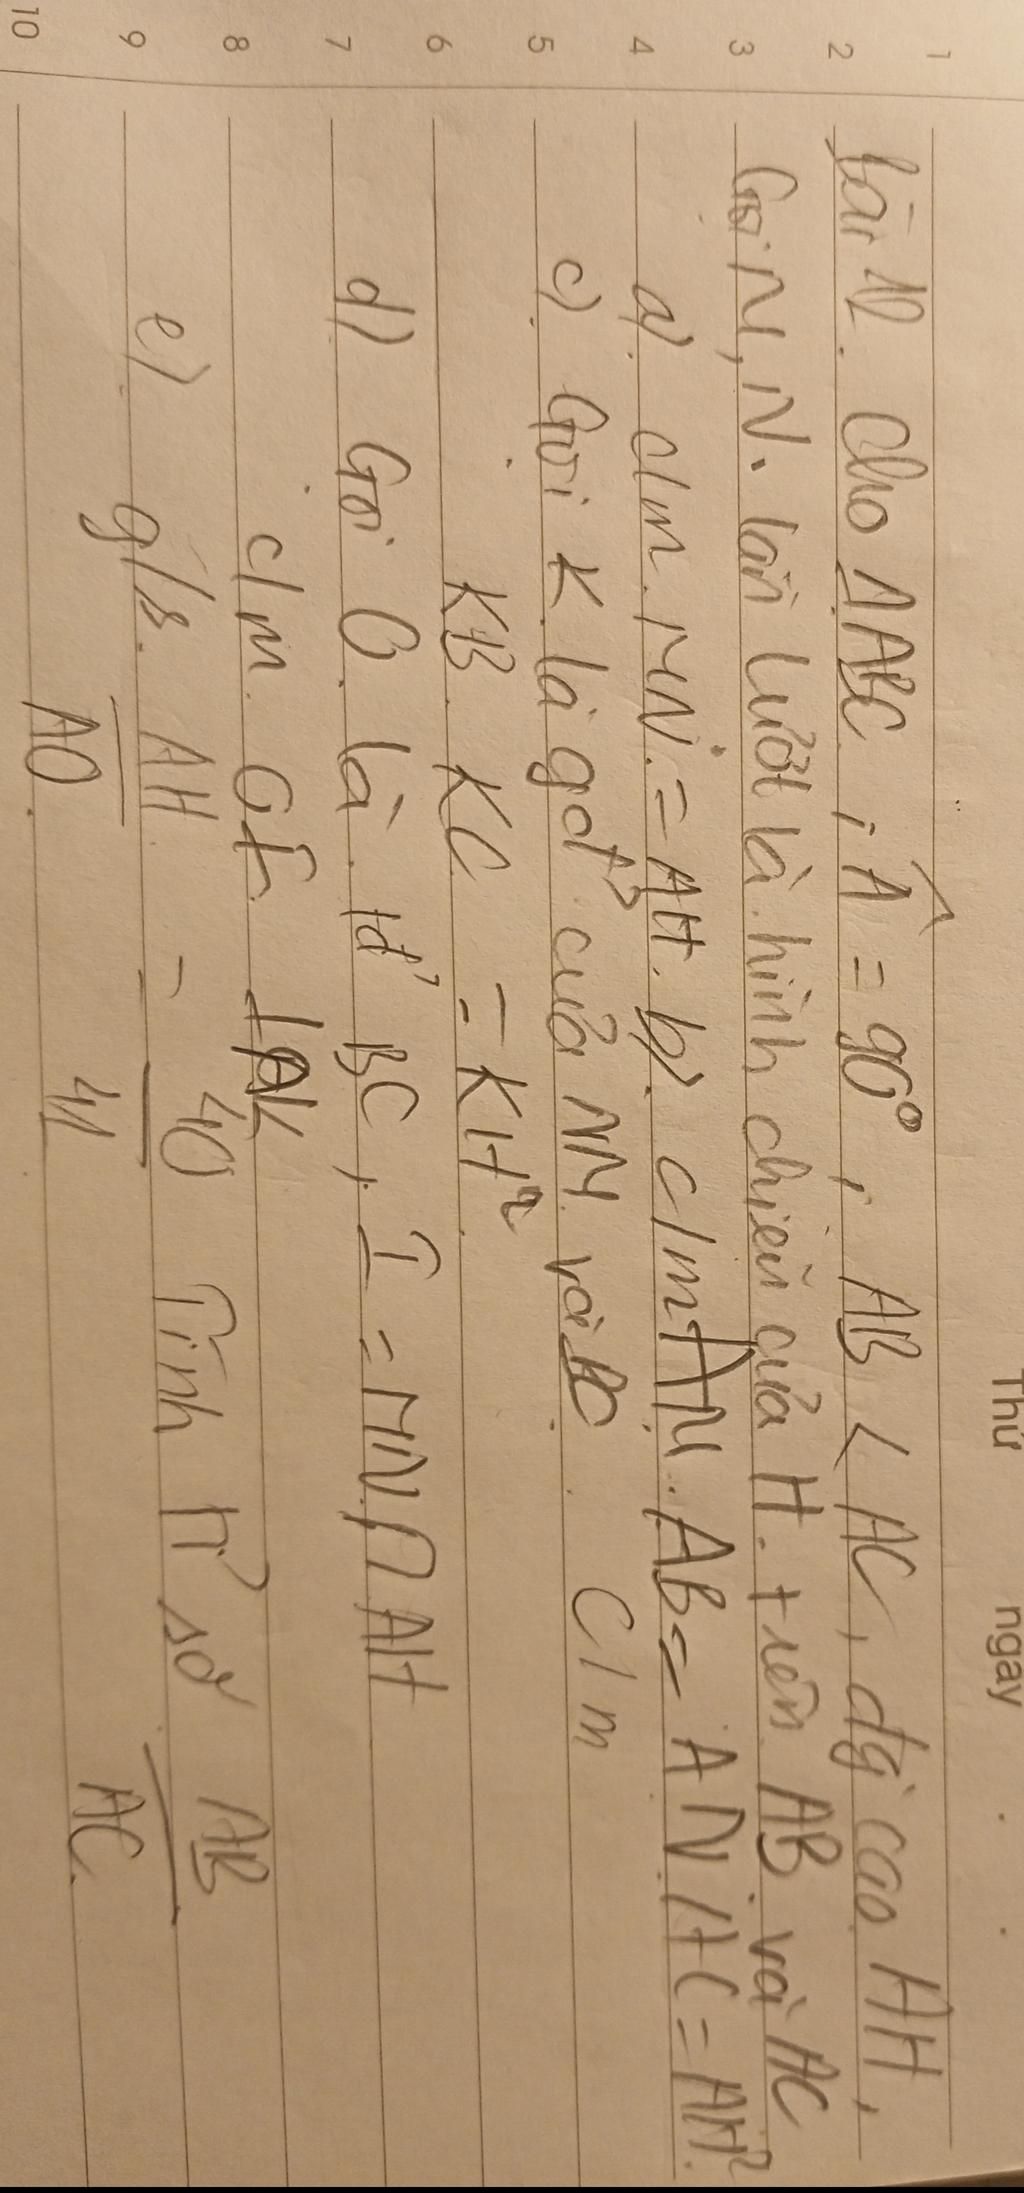 Thứ ngày
1
2 bài 12. cho ΔABC ; Â = 90°, AB < AC, đg cao AH,
3 Gọi M, N. lần lượt là hình chiếu của H. trên AB và AC
4 a). c/m. MN. = AH. b). c/m AM. AB = AN AC = AH²
5 c). Gọi K là gđ của NM và BC. C/m
6 KB. KC = KH²
7 d) Gọi O. là tđ BC, I = MN ∩ AH
8 c/m. OI ⊥ AK
9 e) g/s. AH = 40 Tính tỉ số AB
10 AO 41 AC